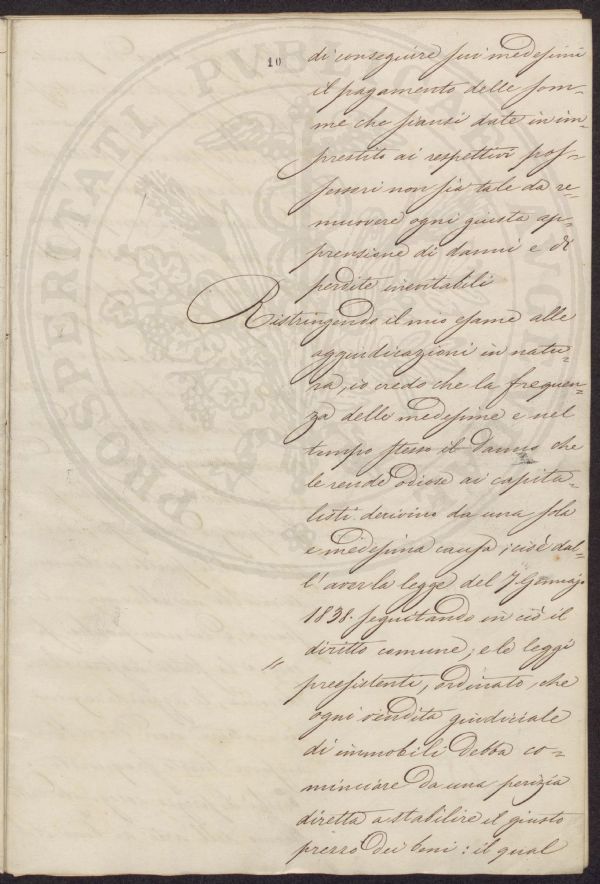 10
di conseguire sui medesimi
il pagamento delle som=
me che siansi date in im=
prestito ai respettivi pos=
sessori non sia tale da re=
muovere ogni giusta ap=
prensione di danni e di
perdite inevitabili
Ristringendo il mio esame alle
aggiudicazioni in natu=
ra, io credo che la frequen=
za delle medesime e nel
tempo stesso il danno che
le rende odiose ai capita=
listi derivino da una sola
e medesima causa; cioè dal=
l'aver la legge del 7. Gennajo
1838. seguitando in ciò il
diritto comune, e le leggi
preesistenti, ordinato, che
ogni vendita giudiciale
di immobili debba co=
minciare da una perizia
diretta a stabilire il giusto
prezzo dei beni: il qual
PROSPERITATI PVBLICAE AVGE